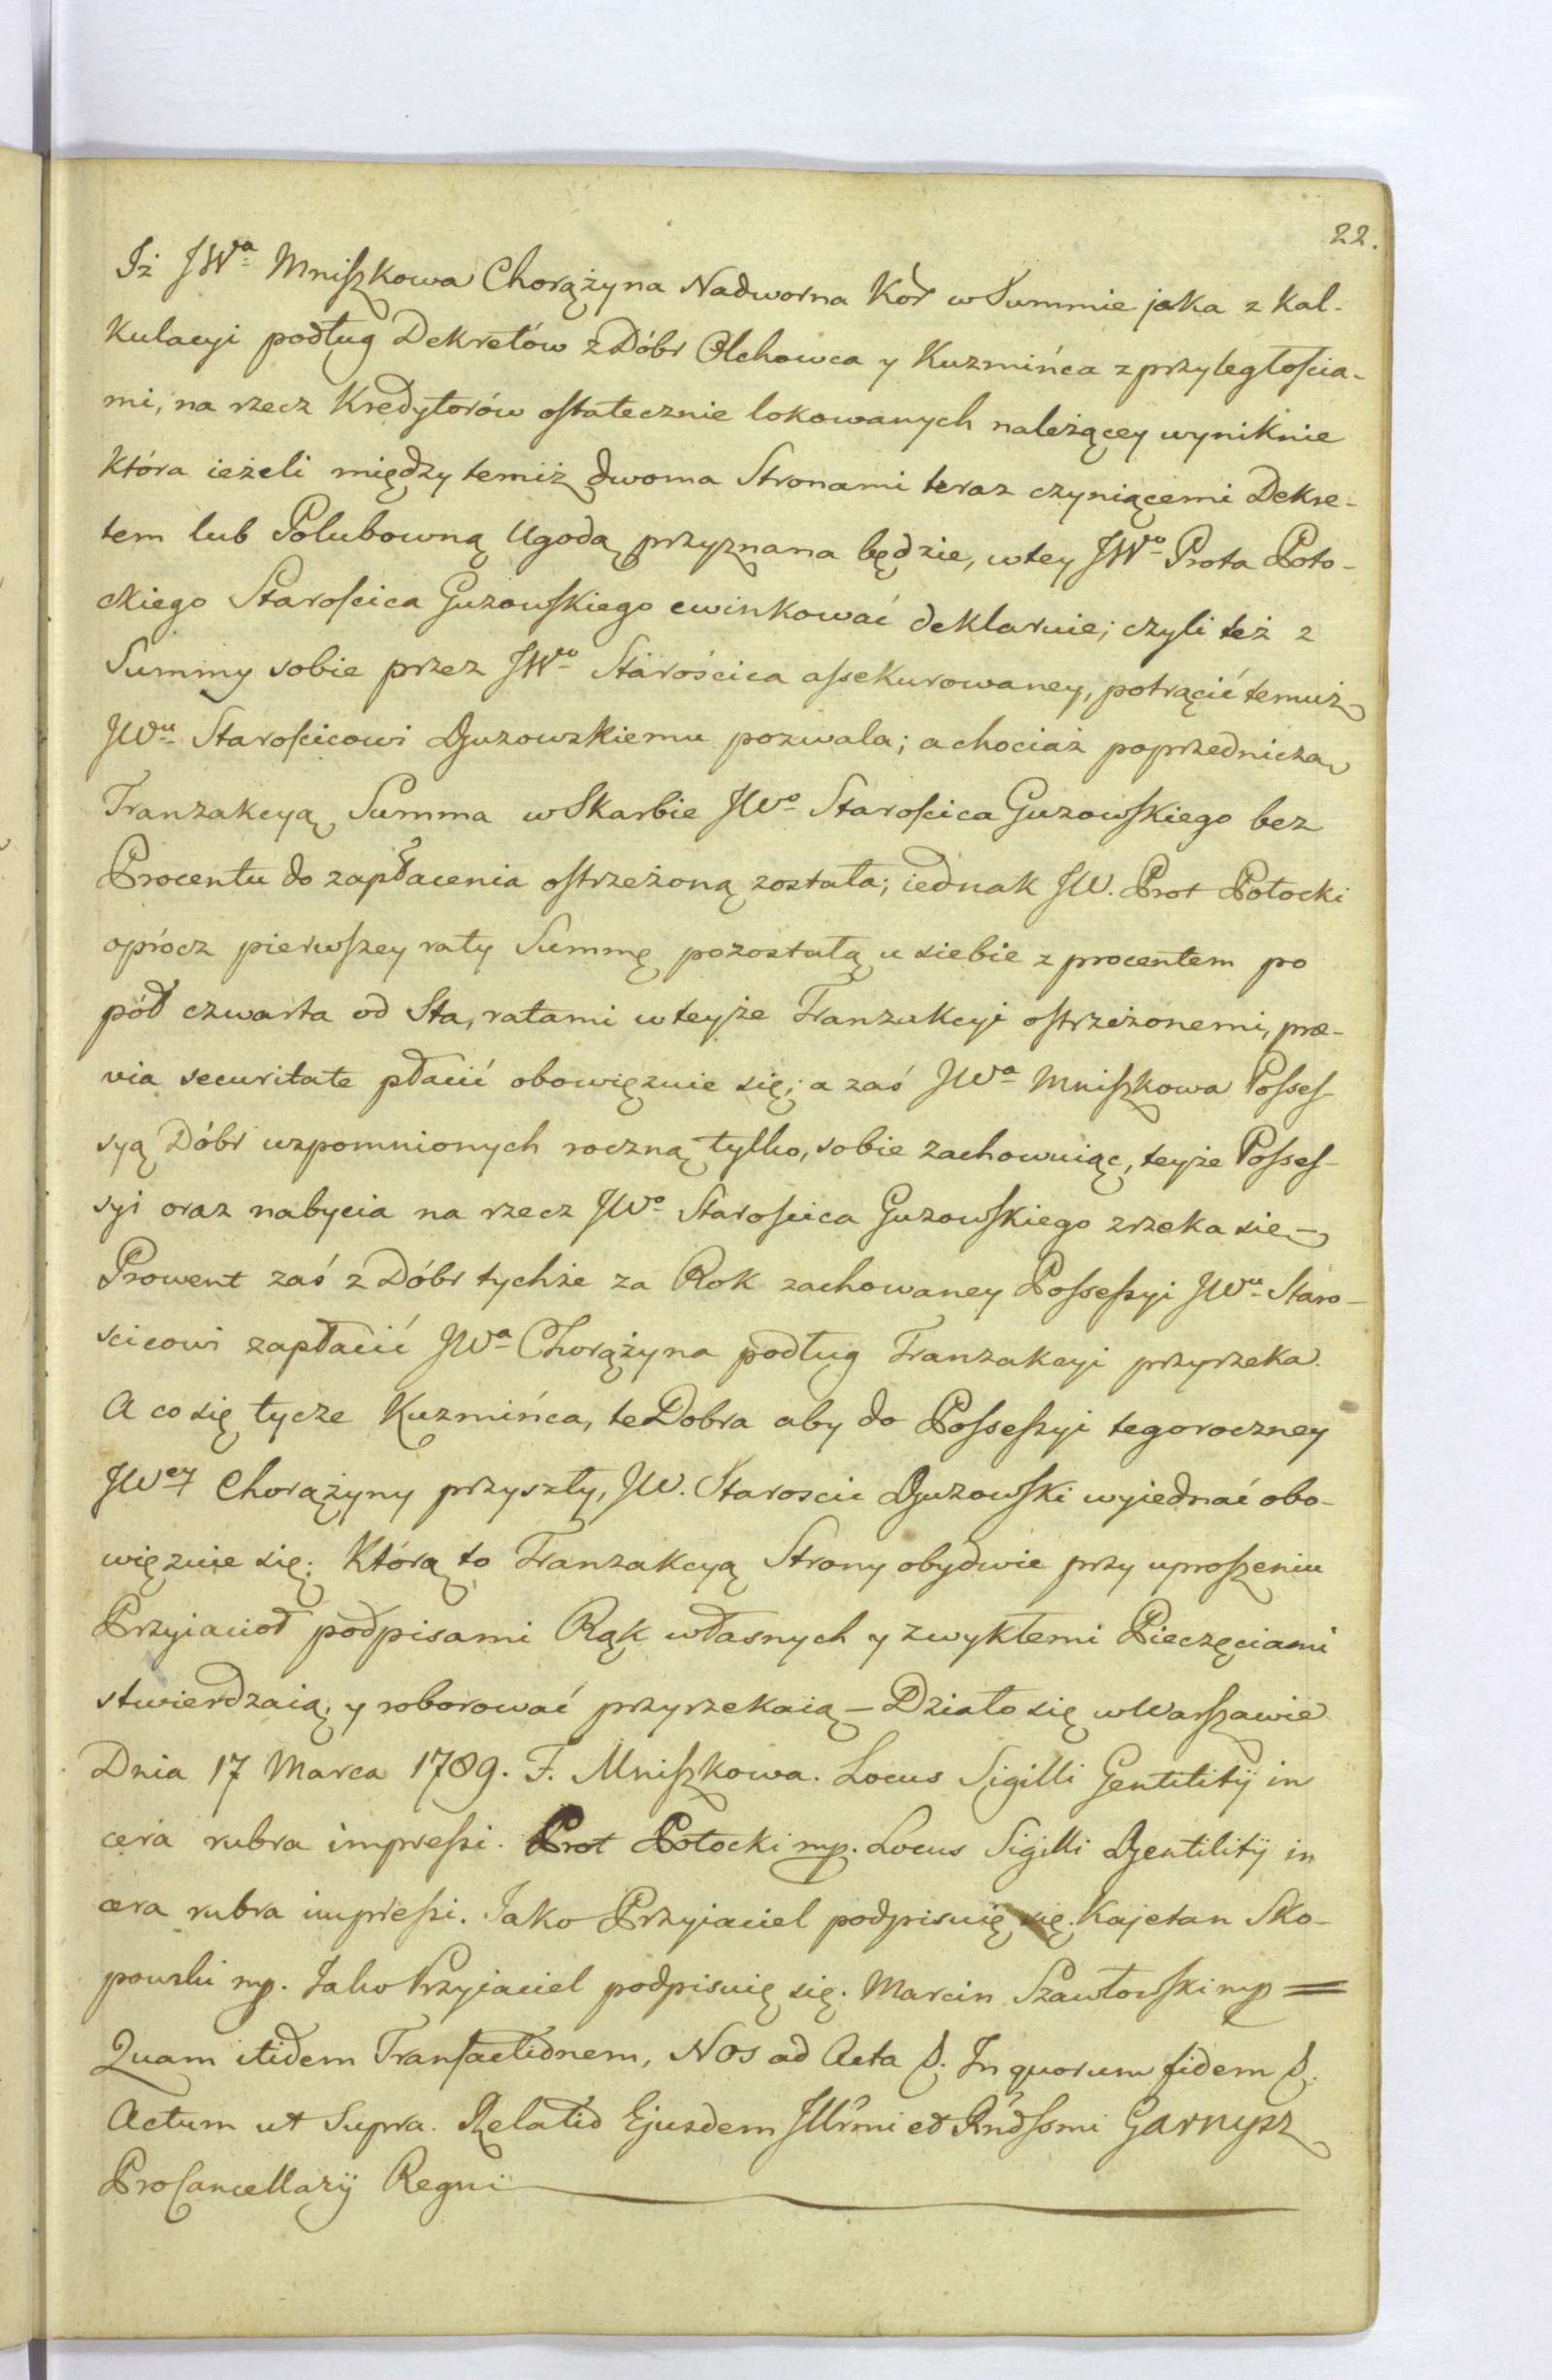 22.
Iż JWa Mniszkowa Chorążyna Nadworna Kor w Summie jaka z kal-
kulacyi podług Dekretów z Dóbr Olchowca y Kuzmińca z przyległościa-
mi, na rzecz Kredytorów ostatecznie lokowanych należącey wyniknie
która ieżeli między temiż dwoma Stronami teraz czyniącemi Dekre-
tem lub Polubowną Ugodą przyznana będzie, w tey JWo Prota Poto-
ckiego Starościca Guzowskiego ewinkować deklaruie; czyli też z
Summy sobie przez JWo Starościca assekurowaney, potrącić temuż
JWu Starościcowi Guzowzkiemu pozwala; a chociaż poprzednicza
Tranzakcyą Summa w Skarbie JWo Starościca Guzowskiego bez
Procentu do zapłacenia ostrzeżoną została; iednak JW. Prot Potocki
oprócz pierwszey raty Summę pozostałą u siebie z procentem po
pół czwarta od Sta, ratami w teyże Tranzakcyi ostrzeżonemi, præ-
via securitate płacić obowięzuie się; a zaś JWa Mniszkowa Posses-
syą Dóbr wzpomnionych roczną tylko, sobie zachowuiąc, teyże Posses-
syi oraz nabycia na rzecz JWo Starościca Guzowskiego zrzeka sie –
Prowent zaś z Dóbr tychże za Rok zachowaney Possessyi JWu Staro-
scicowi zapłacić JWa Chorążyna podług Tranzakcyi przyrzeka.
A co się tycze Kuzmińca, te Dobra aby do Possessyi tegoroczney
JWey Chorążyny przyszły, JW. Staroscic Guzowski wyiednać obo-
więzuie się. Którą to Tranzakcyą Strony obydwie przy uproszeniu
Przyiacioł podpisami Rąk własnych y zwykłemi Pieczęciami
stwierdzaią, y roborować przyrzekaią – Działo się w Warszawie
Dnia 17 Marca 1789. F. Mniszkowa. Locus Sigilli Gentilitij in
cera rubra impressi. Prot Potocki mp. Locus Sigilli Gentilitij in
cera rubra impressi. Jako Przyiaciel podpisuię się. Kajetan Sko-
powski mp. Jako Przyiaciel podpisuię się. Marcin Szawłowski mp =
Quam itidem Transactionem, Nos ad Acta &. In quorum fidem &.
Actum ut Supra. Relatio Ejusdem Illrmi et Rndssmi Garnysz
ProCancellarij Regni